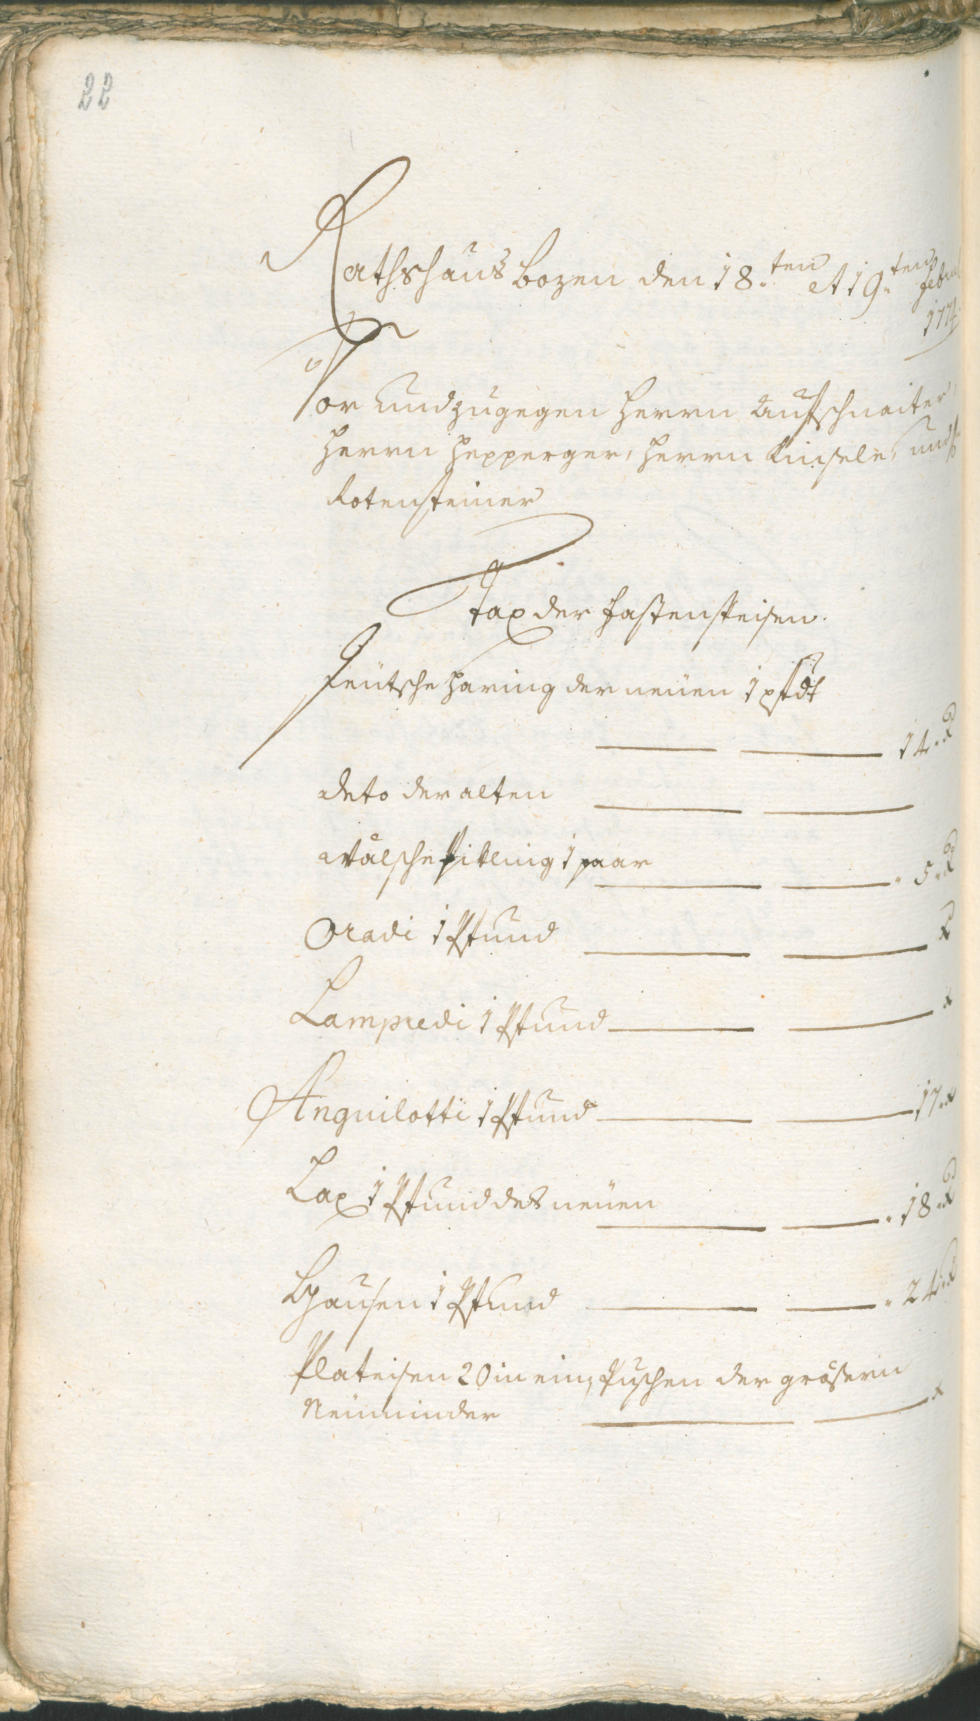 22
Rathshaus Bozen den 18.ten et 19.ten Febr
1774
Vor und zugegen Herrn Aufschnaiter
Herrn Hepperger, Herrn Kinsele, und
Rotensteiner
Tax der Fastenspeisen.
Teütsche Häring der neüen 1
14 x
deto der alten
Wälsche Pitling 1 paar 5 x
Oradi 1 Pfund x
Lampredi 1 Pfund x
Anguilotti 1 Pfund 17 x
Lax 1 Pfund des neüen 18 x
Hausen 1 Pfund 24 x
Plateisen 20 in ein Puschen der grösern
x